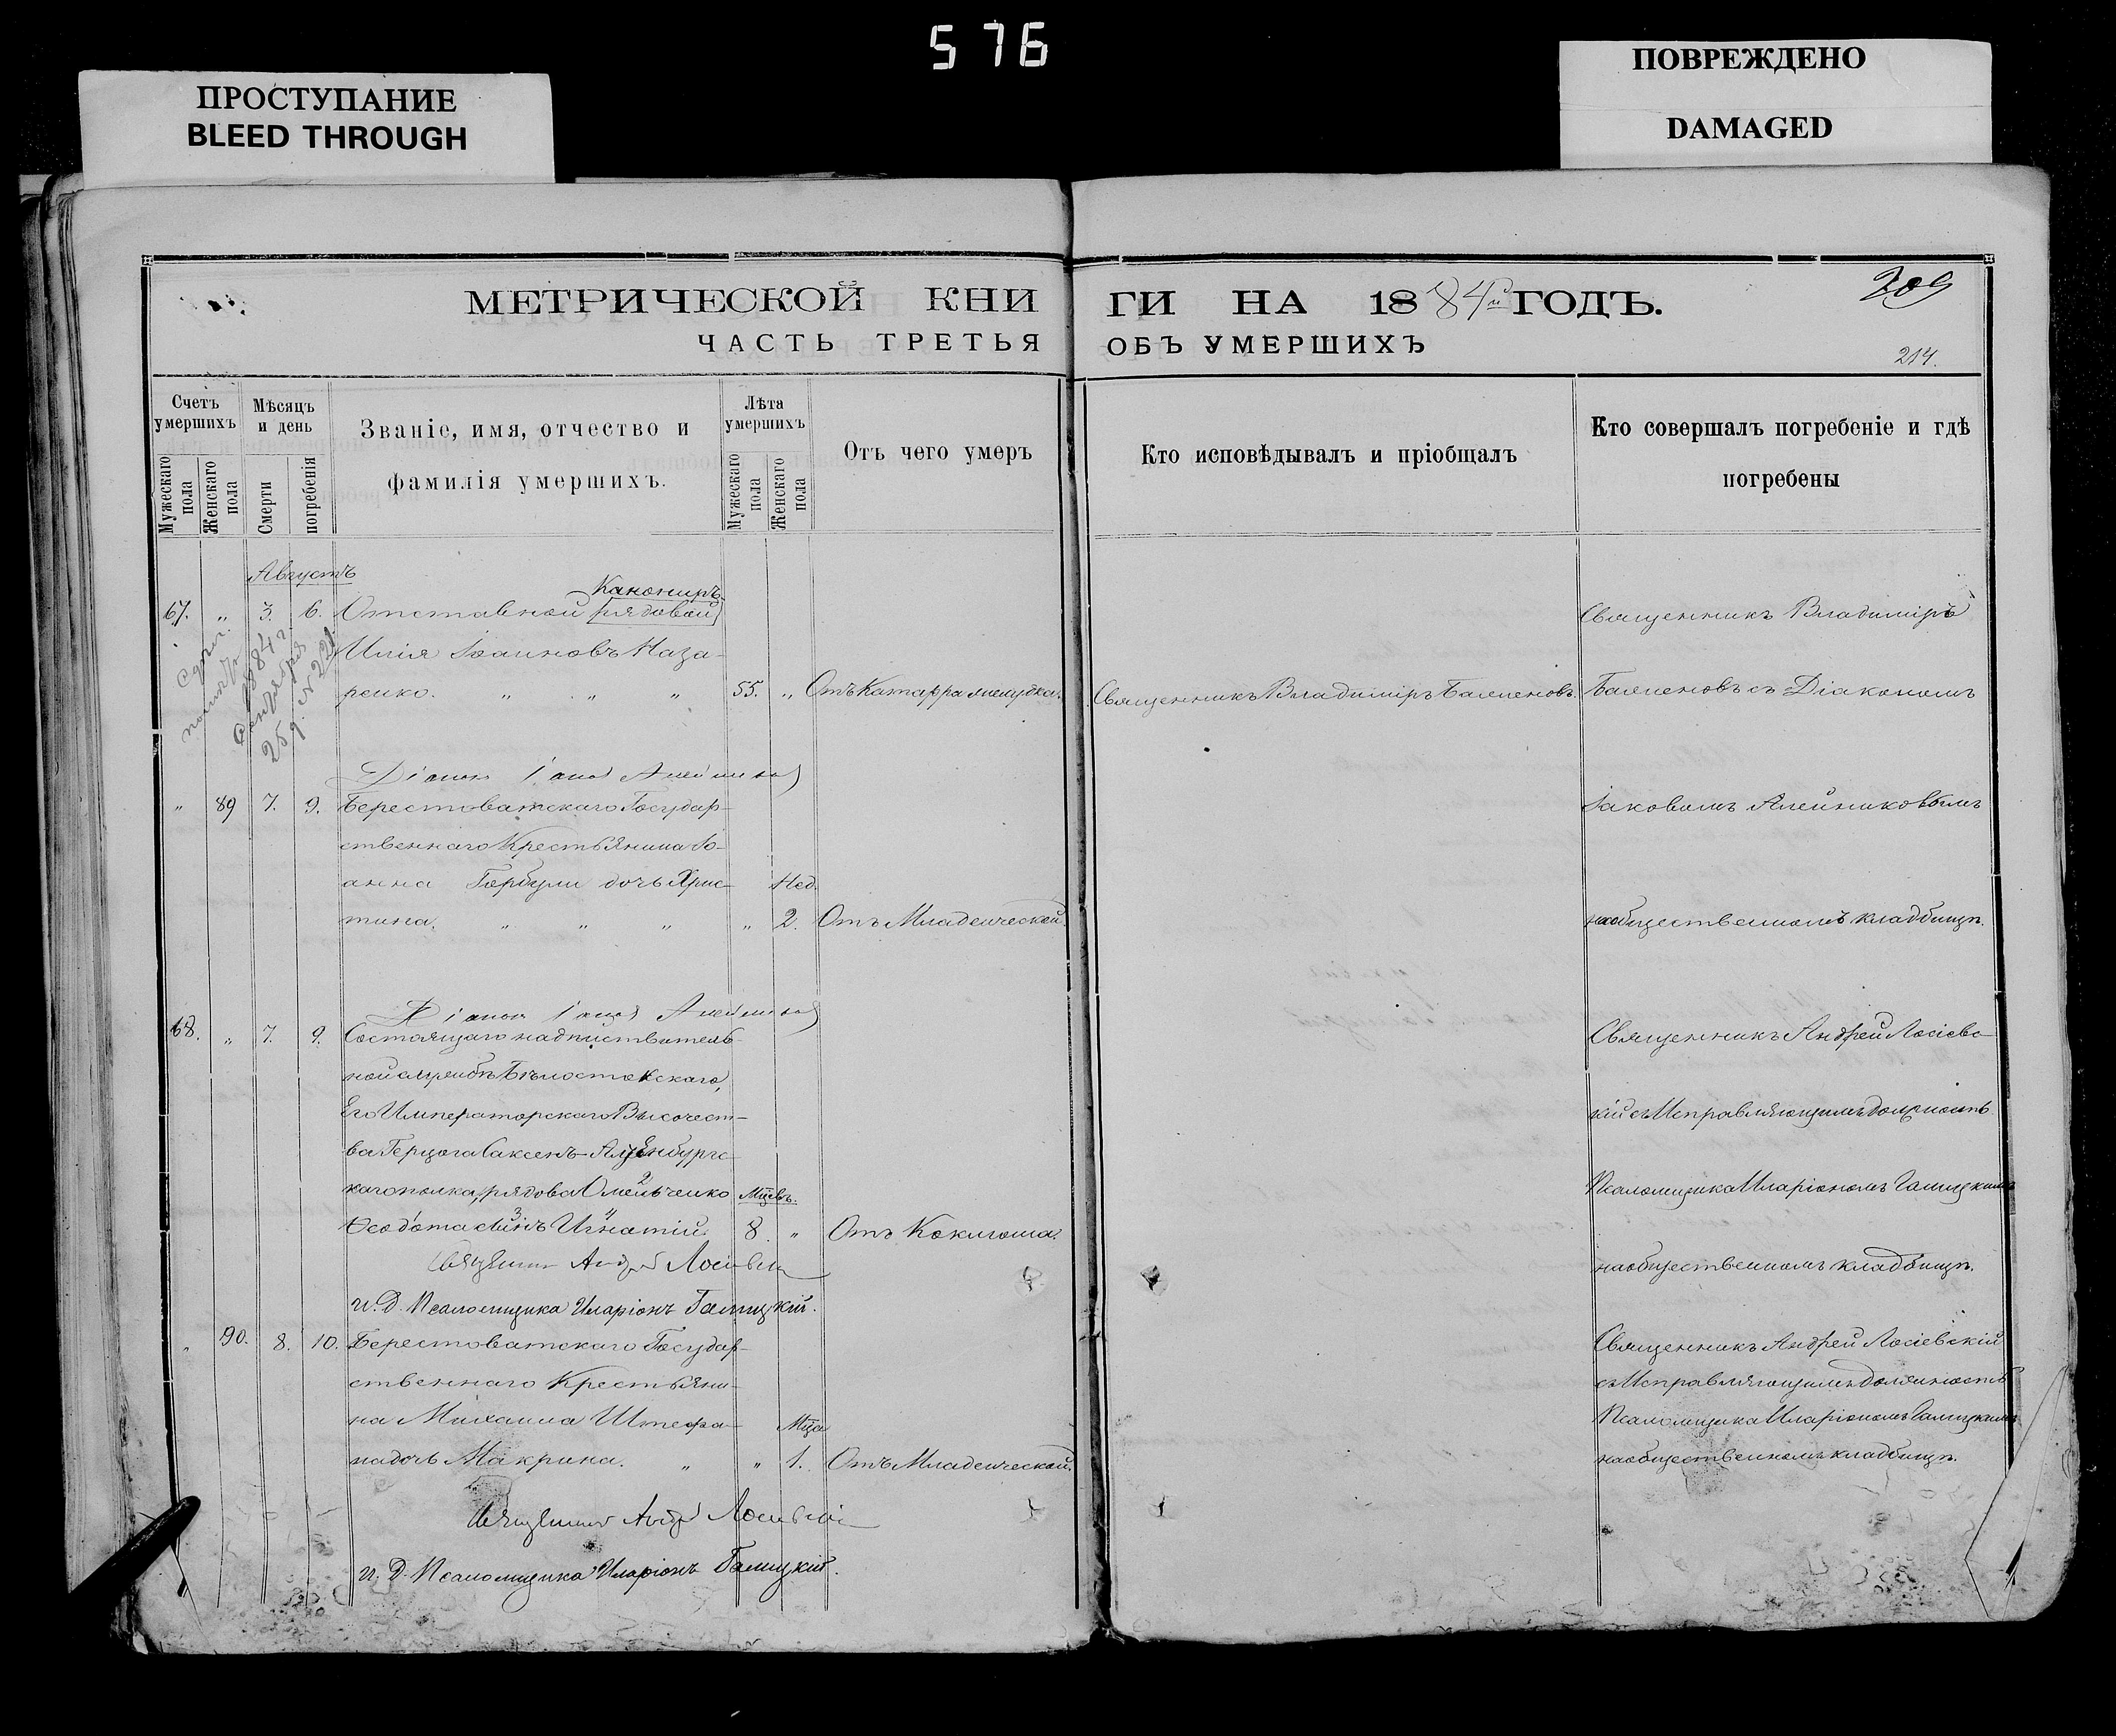 576
ПРОСТУПАНИЕ
BLEED THROUGH
ПОВРЕЖДЕНО
DAMAGED
МЕТРИЧЕСКОЙ КНИ
ГИ НА 1884й ГОДЪ.
209
ЧАСТЬ ТРЕТЬЯ
ОБЪ УМЕРШИХЪ
214.
Счетъ умершихъ
Мужескаго пола
Женскаго пола
Мѣсяцъ и день
Смерти
погребенія
Званіе, имя, отчество и
фамилія умершихъ.
Лѣта умершихъ
Мужескаго пола
Женскаго пола
Отъ чего умеръ
Кто исповѣдывалъ и пріобщалъ
Кто совершалъ погребеніе и гдѣ
погребены
Августъ
Канониръ
67. „ 3. 6. Отставной рядовой
Илія Іоанновъ Наза-
ренко. „ „ „ 55. „ Отъ Катарра желудка.
1884 г.
Сентября
25 д. №
Священникъ Владиміръ Баженовъ
Священникъ Владиміръ
Баженовъ съ Діакономъ
Діаконъ Іаковъ Алейниковъ
„ 89 7. 9. Берестоватскаго Государ-
ственнаго Крестьянина Іо-
анна Горбули дочь Хрис- Нед.
тина. „ „ „ „ 2. Отъ Младенческой.
Іаковомъ Алейниковымъ
на общественномъ кладбищѣ.
Діаконъ Іаковъ Алейниковъ
68. „ 7. 9. Состоящаго на дѣиствитель-
ной службѣ Бѣлостокскаго,
Его Императорскаго Высочест-
ва Герцога Саксенъ-Альтенбургс-
каго полка, рядова Омельченко Мцевъ.
Ѳеодота сынъ Игнатій 8. „ Отъ Коклюша.
Священникъ Андрей Лосіевскій
и. Д. Псаломщика Иларіонъ Галицкій.
Священникъ Андрей Лосіевс-
кій съ Исправляющимъ должность
Псаломщика Иларіономъ Галицкимъ
на общественномъ кладбищѣ.
„ 90. 8. 10. Берестоватскаго Государ-
ственнаго Крестьяни-
на Михаила Штефа- Мца
на дочь Макрина. „ „ 1. Отъ Младенческой.
Священникъ Андрей Лосіевскій
и. Д. Псаломщика Иларіонъ Галицкій.
Священникъ Андрей Лосіевскій
съ Исправляющимъ должность
Псаломщика Иларіономъ Галицкимъ
на общественномъ кладбищѣ.